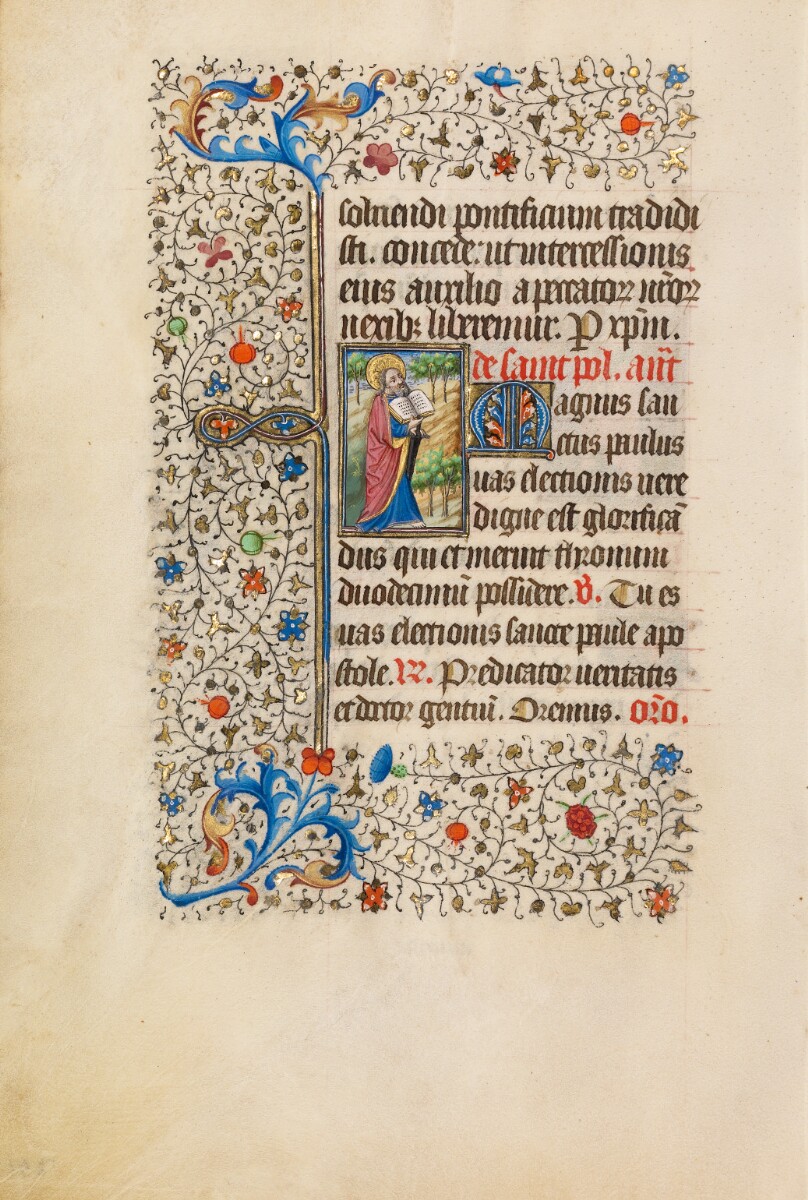 soluendi pontificium tradidi
sti. concede: ut intercessionis
eius auxilio a peccatoꝝ nr̄oꝝ
nexibꝫ liberemur. P xp̄m.
de saint pol. ant̄
Magnus san
ctus paulus
uas electionis uere
digne est glorificā
dus qui et meruit thronum
duodecimū possidere. ℣. Tu es
uas electionis sancte paule apo
stole. ℟. Predicator ueritatis
et doctor gentiū. Oremus. or̄o.